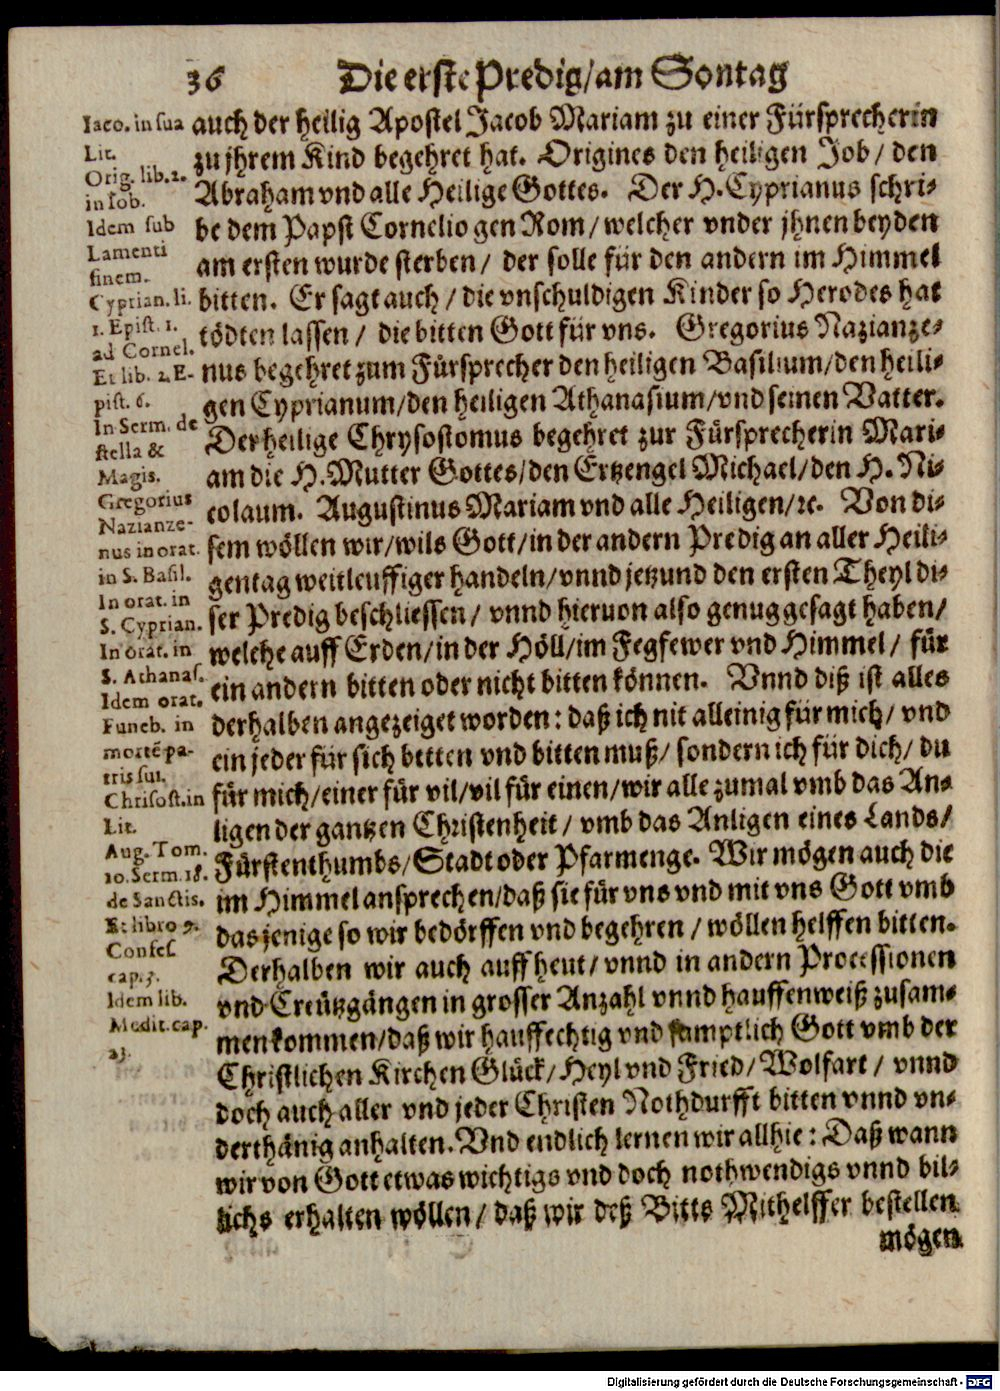 36 Die erste Predig/am Sontag
Iaco. in sua
Lit.
Orig. lib. 2.
in Iob.
Idem sub
Lamenti
finem.
Cyprian. li.
1. Epist. 1.
ad Cornel.
Et lib. 2. E-
pist. 6.
In Serm. de
stella &
Magis.
Gregorius
Nazianze-
nus in orat.
in S. Basil.
In orat. in
S. Cyprian.
In orat. in
S. Athanas.
Idem orat.
Funeb. in
mortē pa-
tris sui.
Chrisost. in
Lit.
Aug. Tom.
10. Serm. 18.
de Sanctis.
Et libro 9.
Confes.
cap. 3.
Idem lib.
Medit. cap.
23.
auch der heilig Apostel Jacob Mariam zu einer Fürsprecherin
zu jhrem Kind begehret hat. Origines den heiligen Job/ den
Abraham vnd alle Heilige Gottes. Der H. Cyprianus schri-
be dem Papst Cornelio gen Rom/ welcher vnder jhnen beyden
am ersten wurde sterben/ der solle für den andern im Himmel
bitten. Er sagt auch/ die vnschuldigen Kinder so Herodes hat
tödten lassen/ die bitten Gott für vns. Gregorius Nazianze-
nus begehret zum Fürsprecher den heiligen Basilium/den heili-
gen Cyprianum/den heiligen Athanasium/vnd seinen Vatter.
Der heilige Chrysostomus begehret zur Fürsprecherin Mari-
am die H. Mutter Gottes/den Ertzengel Michael/den H. Ni-
colaum. Augustinus Mariam vnd alle Heiligen/ꝛc. Von di-
sem wöllen wir/wils Gott/in der andern Predig an aller Heili-
gentag weitleuffiger handeln/vnnd jetzund den ersten Theyl di-
ser Predig beschliessen/ vnnd hieruon also genug gesagt haben/
welche auff Erden/in der Höll/im Fegfewer vnd Himmel/ für
ein andern bitten oder nicht bitten können. Vnnd diß ist alles
derhalben angezeiget worden: daß ich nit alleinig für mich/ vnd
ein jeder für sich betten vnd bitten muß/ sondern ich für dich/ du
für mich/einer für vil/vil für einen/wir alle zumal vmb das An-
ligen der gantzen Christenheit/ vmb das Anligen eines Lands/
Fürstenthumbs/Stadt oder Pfarmenge. Wir mögen auch die
im Himmel ansprechen/daß sie für vns vnd mit vns Gott vmb
das jenige so wir bedörffen vnd begehren/ wöllen helffen bitten.
Derhalben wir auch auff heut/ vnnd in andern Processionen
vnd Creützgängen in grosser Anzahl vnnd hauffenweiß zusam-
menkommen/daß wir hauffechtig vnd samptlich Gott vmb der
Christlichen Kirchen Glück/Heyl vnd Fried/Wolfart/ vnnd
doch auch aller vnd jeder Christen Nothdurfft bitten vnnd vn-
derthänig anhalten. Vnd endlich lernen wir allhie: Daß wann
wir von Gott etwas wichtigs vnd doch nothwendigs vnnd bil-
lichs erhalten wöllen/ daß wir deß Bitts Mithelffer bestellen
mögen
Digitalisierung gefördert durch die Deutsche Forschungsgemeinschaft - DFG